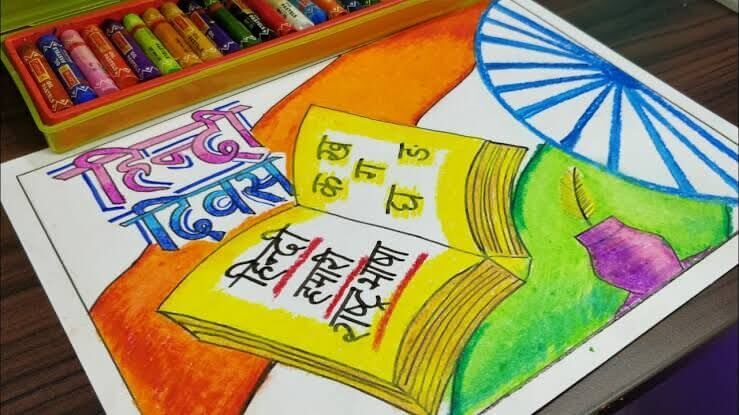 हिन्दी
दिवस
क ख
ग
घ ङ
हिन्दी
हमारी
राष्ट्र भाषा